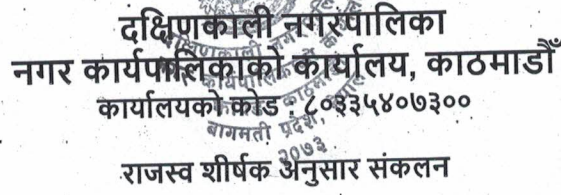 दक्षिणकाली नगरपालिका
नगर कार्यपालिकाको कार्यालय, काठमाडौँ
कार्यालयको कोड : ८०३३५४०७३००
बागमती प्रदेश,
२०७३
राजस्व शीर्षक अनुसार संकलन